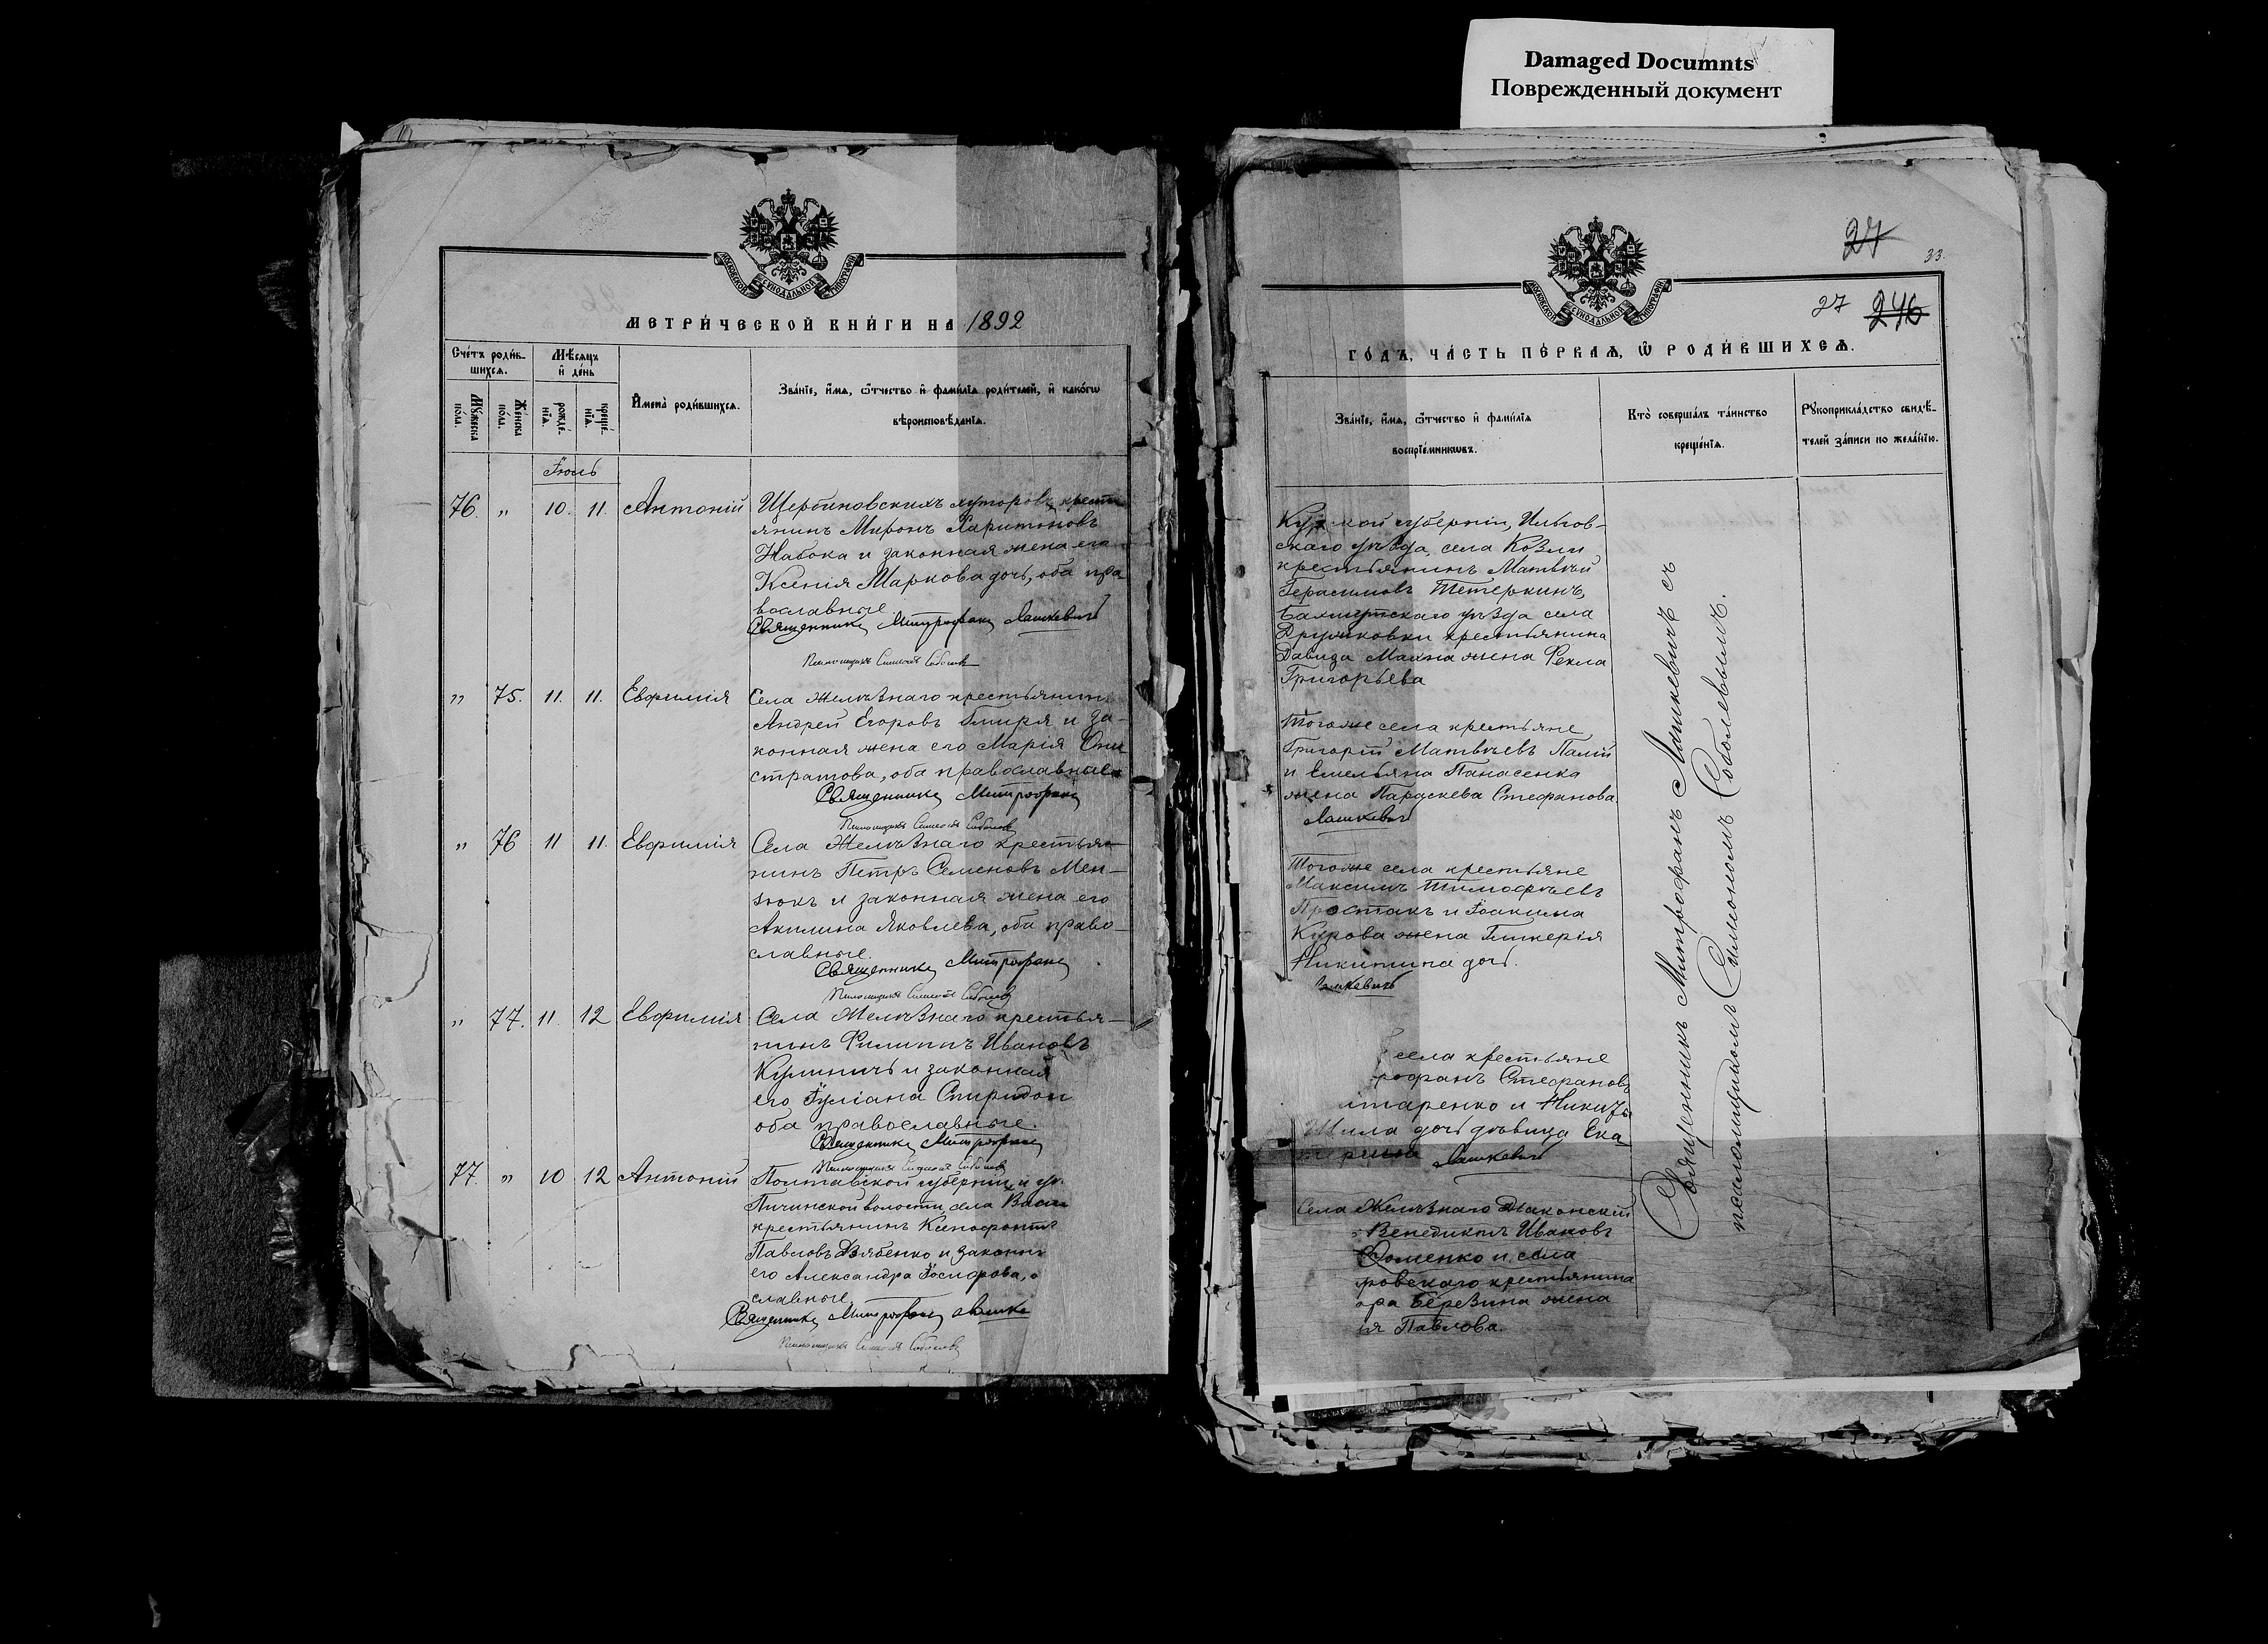 Damaged Documnts
Поврежденный документ
МОСКОВСКОЙ СѴНОДАЛЬНОЙ ТИПОГРАФІИ
МЕТРИ́ЧЕСКОЙ КНИ́ГИ НА 1892
Сче́тъ роди́в-
шихсѧ.
Мѣ́сѧцъ
и҆ де́нь
Мꙋ́жеска
по́ла.
Же́нска
по́ла.
рожде́-
нїѧ.
креще́-
нїѧ.
И҆мена̀ роди́вшихсѧ.
Зва́нїе, и҆́мѧ, ѻ҆́тчество и҆ фами́лїѧ роди́телей, и҆ како́гѡ
вѣроисповѣ́данїѧ.
Іюль
76. " 10. 11. Антоній Щербиновскихъ хуторовъ, крестъ
янинъ Миронъ Харитоновъ
Набока и законная жена его
Ксенія Маркова дочь, оба пра
вославные.
Священникъ Митрофанъ Лашкевичъ
Псаломщикъ Симеонъ Соболевъ
" 75. 11. 11. Евфимія Села Желѣзнаго крестьянинъ
Андрей Егоровъ Гмиря и за-
конная жена его Марія
стратова, оба православные
Священникъ Митрофанъ
Псаломщикъ Симеонъ Соболевъ
" 76 11 11. Евфимія Села Желѣзнаго крестья-
нинъ Петръ Семеновъ Мен-
зюкъ и законная жена его
Акилина Яковлева, оба право-
славные.
Священникъ Митрофанъ
Псаломщикъ Симеонъ Соболевъ
" 77. 11. 12 Евфимія Села Желѣзнаго крестья-
нинъ Филиппъ Ивановъ
Кулиничъ и законная
его Іуліана Спиридон
оба православные.
Священникъ Митрофанъ
Псаломщикъ Симеонъ Соболевъ
77. " 10 12 Антоній Полтавской губерніи и у.
волости, села
крестьянинъ Ксенофонтъ
Павловъ Дзябенко и законн
его Александра Іосифова, о
славные.
Священникъ Митрофанъ Лашке
Псаломщикъ Симеонъ Соболевъ
27
33.
27 246
МОСКОВСКОЙ СѴНОДАЛЬНОЙ ТИПОГРАФІИ
ГО́ДЪ, ЧА́СТЬ ПЕ́РВАѦ, Ѽ РОДИ́ВШИХСѦ.
Зва́нїе, и҆́мѧ, ѻ҆́тчество и҆ фами́лїѧ
воспрїе́мникѡвъ.
Кто̀ соверша́лъ та́инство
креще́нїѧ.
Рꙋкоприкла́дство свидѣ́-
телей за́писи по жела́нїю.
Курской губерніи, Льгов-
скаго уѣзда, села Козли
крестьянинъ Матвѣй
Герасимовъ Тетеркинъ,
Бахмутскаго уѣзда села
Дружковки крестьянина
Давида жена Фекла
Григорьева
Тогоже села крестьяне
Григорій Матвѣевъ Палій
и Емельяна Панасенка
жена Параскева Стефанова.
Лашкевичъ
Тогоже села крестьяне
Максимъ Тимофѣевъ
Простакъ и Іоакима
Кирова жена Гликерія
Никитина дочь.
Лашкевичъ
села крестьяне
рофанъ Стефановъ
итаренко и Никиты
Шила дочь дѣвица Ека-
терина Лашкевичъ
Села Желѣзнаго Дьяконскій
Венедиктъ Ивановъ
Фоменко и села
ровскаго крестьянина
ора Березина жена
ія Павлова.
Священникъ Митрофанъ Лашкевичъ съ
псаломщикомъ Симеономъ Соболевымъ.